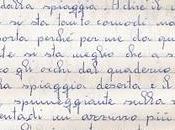 dalla spiaggia. A dire il
si sta tanto comodi ma
porta perché per me da qu
te si sta meglio che a
o gli occhi dal quaderno
na spiaggia deserta e il
spumeggiante sulla s
di un azzurro più